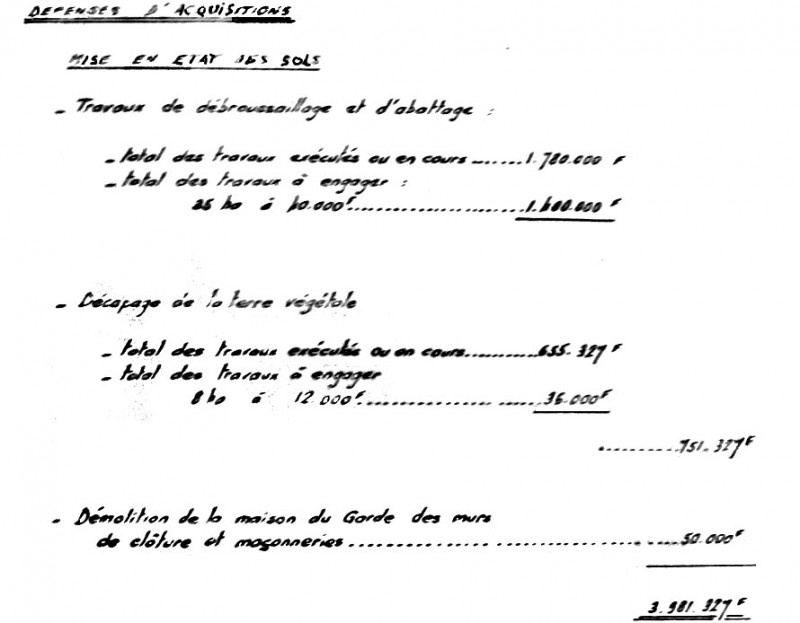 DEPENSES D'ACQUISITIONS
MISE EN ETAT DES SOLS
- Travaux de débroussaillage et d'abattage :
- total des travaux exécutés ou en cours ........1.780.000 F
- total des travaux à engager :
35 ha à 40.000F........................1.400.000 F
- Décapage de la terre végétale
- total des travaux exécutés ou en cours..........655.327 F
- total des travaux à engager
8 ha à 12.000F........................96.000F
..........751.327F
- Démolition de la maison du Garde des murs
de clôture et maçonneries.......................................50.000F
3.981.327 F